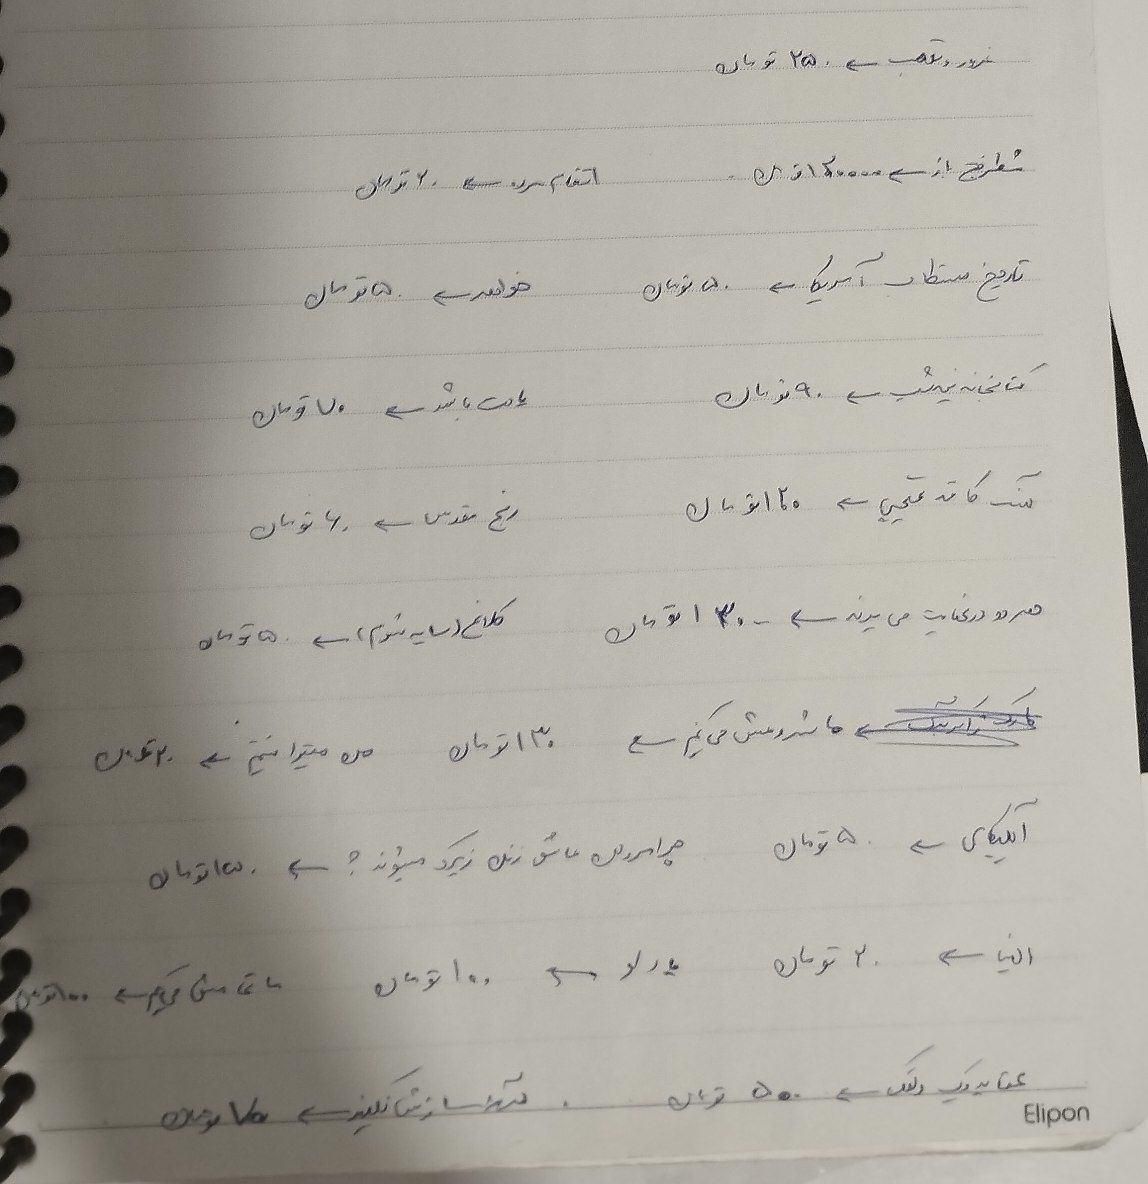 غرور و تعصب ← ۲۵۰ تومان
شطرنج باز ← ۱۲۰۰۰۰ تومان انتقام مرده ← ۲۰ تومان
تاریخ مستطاب آمریکا ← ۵۰ تومان خواهر ← ۵۰ تومان
کتابخانه نیمه شب ← ۹۰ تومان باشد ← ۷۰ تومان
← ۱۲۰ تومان رنج مقدس ← ۶۰ تومان
هر دو در نهایت می میرند ← ۱۳۰ تومان کلاغ (سایه شوم) ← ۵۰ تومان
ما شروعش می‌کنیم ← ۱۳۰ تومان من میترا نیستم ← ۲۰ تومان
← ۵۰ تومان چرا مردان عاشق زنان زیرک میشوند ؟ ← ۱۵۰ تومان
النیا ← ۲۰ تومان ← ۱۰۰ تومان ما تمامش می‌کنیم ← ۱۰۰ تومان
عقاید یک دلقک ← ۵۰ تومان ← ۷۵ تومان
Elipon